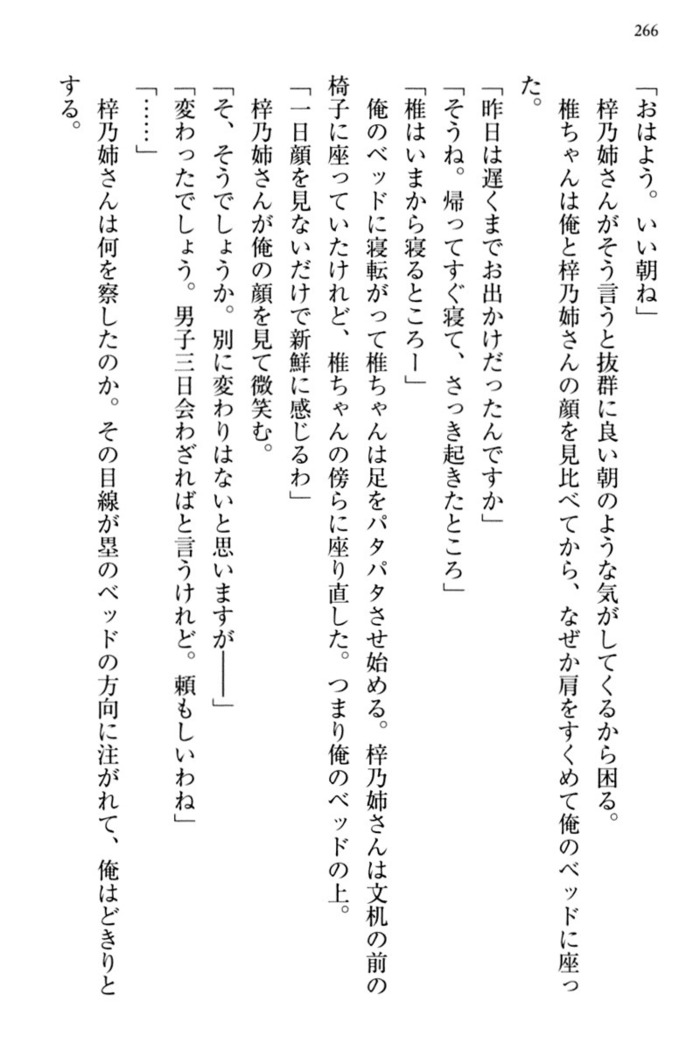 266
「おはよう。いい朝ね」
　梓乃姉さんがそう言うと抜群に良い朝のような気がしてくるから困る。
　椎ちゃんは俺と梓乃姉さんの顔を見比べてから、なぜか肩をすくめて俺のベッドに座っ
た。
「昨日は遅くまでお出かけだったんですか」
「そうね。帰ってすぐ寝て、さっき起きたところ」
「椎はいまから寝るところー」
　俺のベッドに寝転がって椎ちゃんは足をパタパタさせ始める。梓乃姉さんは文机の前の
椅子に座っていたけれど、椎ちゃんの傍らに座り直した。つまり俺のベッドの上。
「一日顔を見ないだけで新鮮に感じるわ」
　梓乃姉さんが俺の顔を見て微笑む。
「そ、そうでしょうか。別に変わりはないと思いますが――」
「変わったでしょう。男子三日会わざればと言うけれど。頼もしいわね」
「……」
　梓乃姉さんは何を察したのか。その目線が塁のベッドの方向に注がれて、俺はどきりと
する。